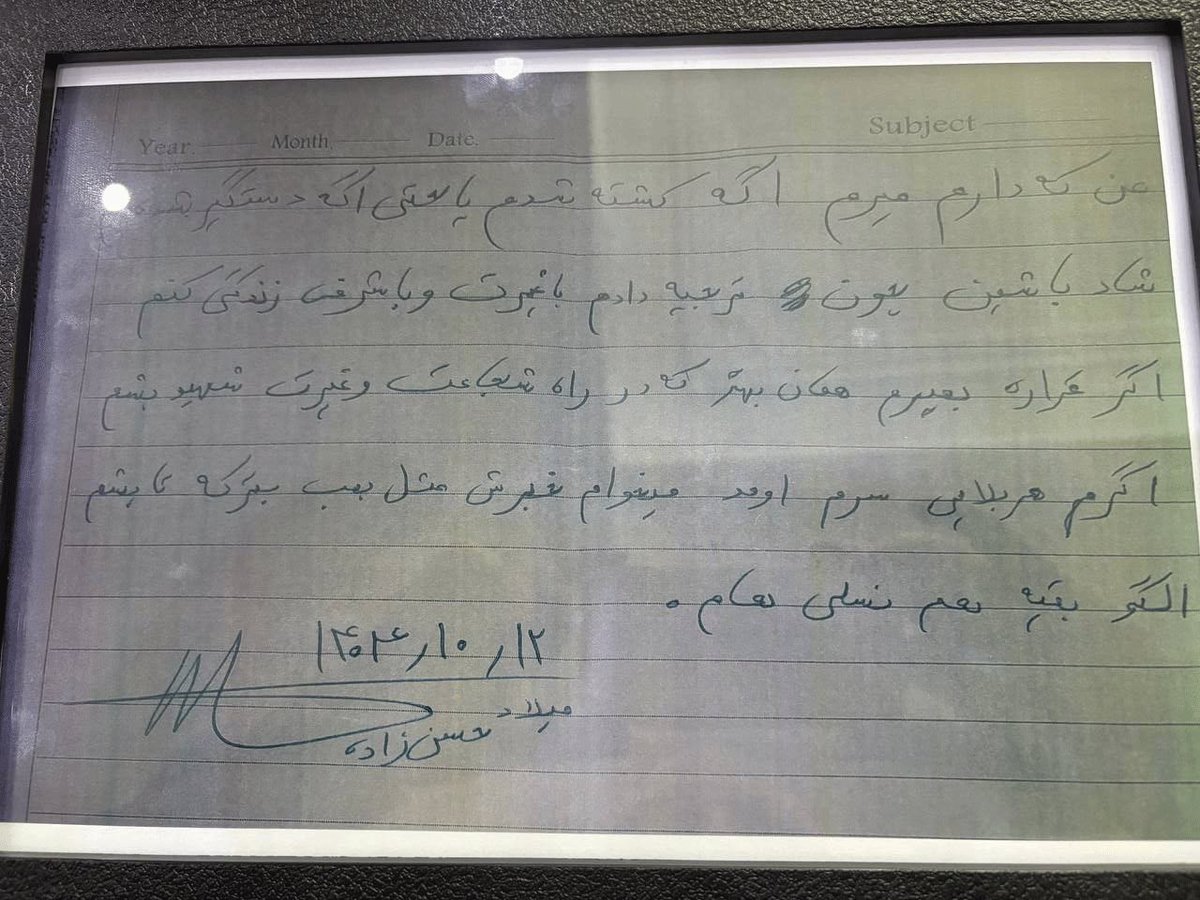 Year. Month. Date. Subject
من که دارم میرم اگه کشته شدم یا حتی اگه دستگیر شدم
شاد باشین چون ترجیه دادم باغیرت و باشرف زندگی کنم
اگر قراره بمیرم همان بهتر که در راه شجاعت و غیرت شهید بشم
اگرم هر بلایی سرم اومد میخوام خبرش مثل بمب بترکه تا بشم
الگو بقیه هم نسلی هام.
۱۴۰۴/۱۰/۱۲
میلاد
حسن زاده